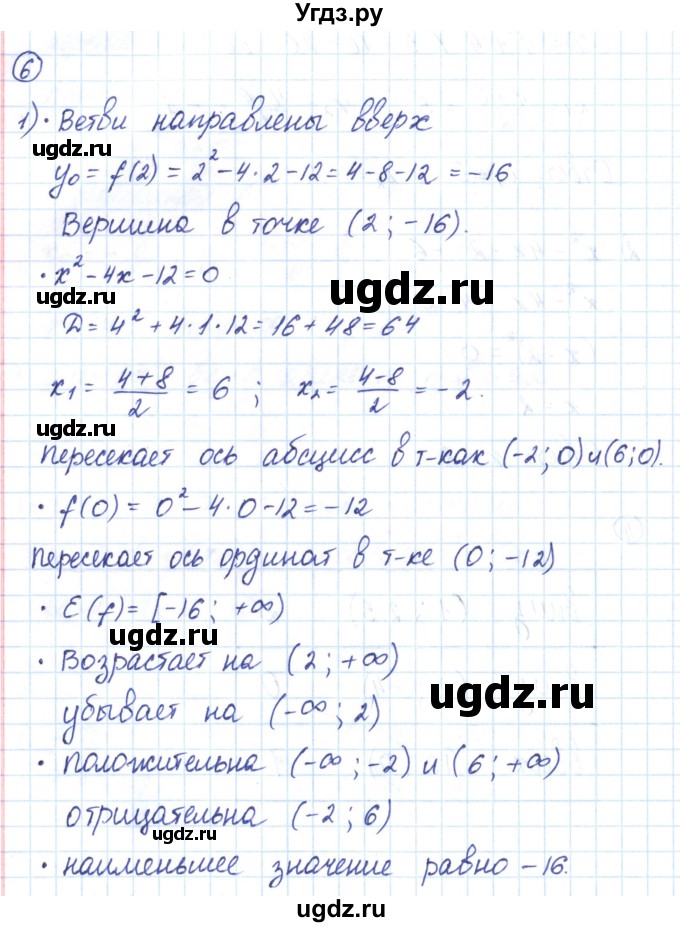 Угдз.ру
6
1) • Ветви направлены вверх
ugdz.ru
y₀ = f(2) = 2² - 4 · 2 - 12 = 4 - 8 - 12 = -16
Вершина в точке (2 ; -16).
• x² - 4x - 12 = 0
ugdz.ru
ugdz.ru
Д = 4² + 4 · 1 · 12 = 16 + 48 = 64
x₁ = (4+8)/2 = 6 ; x₂ = (4-8)/2 = -2.
ugdz.ru
пересекает ось абсцисс в т-ках (-2 ; 0) и (6 ; 0).
• f(0) = 0² - 4 · 0 - 12 = -12
пересекает ось ординат в т-ке (0 ; -12)
• E(f) = [-16 ; +∞)
ugdz.ru
• Возрастает на (2 ; +∞)
ugdz.ru
убывает на (-∞ ; 2)
• положительна (-∞ ; -2) и (6 ; +∞)
отрицательна (-2 ; 6)
ugdz.ru
• наименьшее значение равно -16.
ugdz.ru